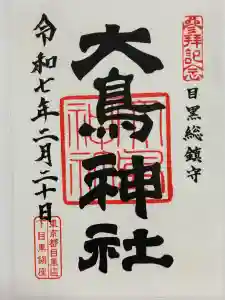 登拝記念
目黒総鎮守
大鳥神社
令和七年二月二十日
東京都目黒区
下目黒鎮座